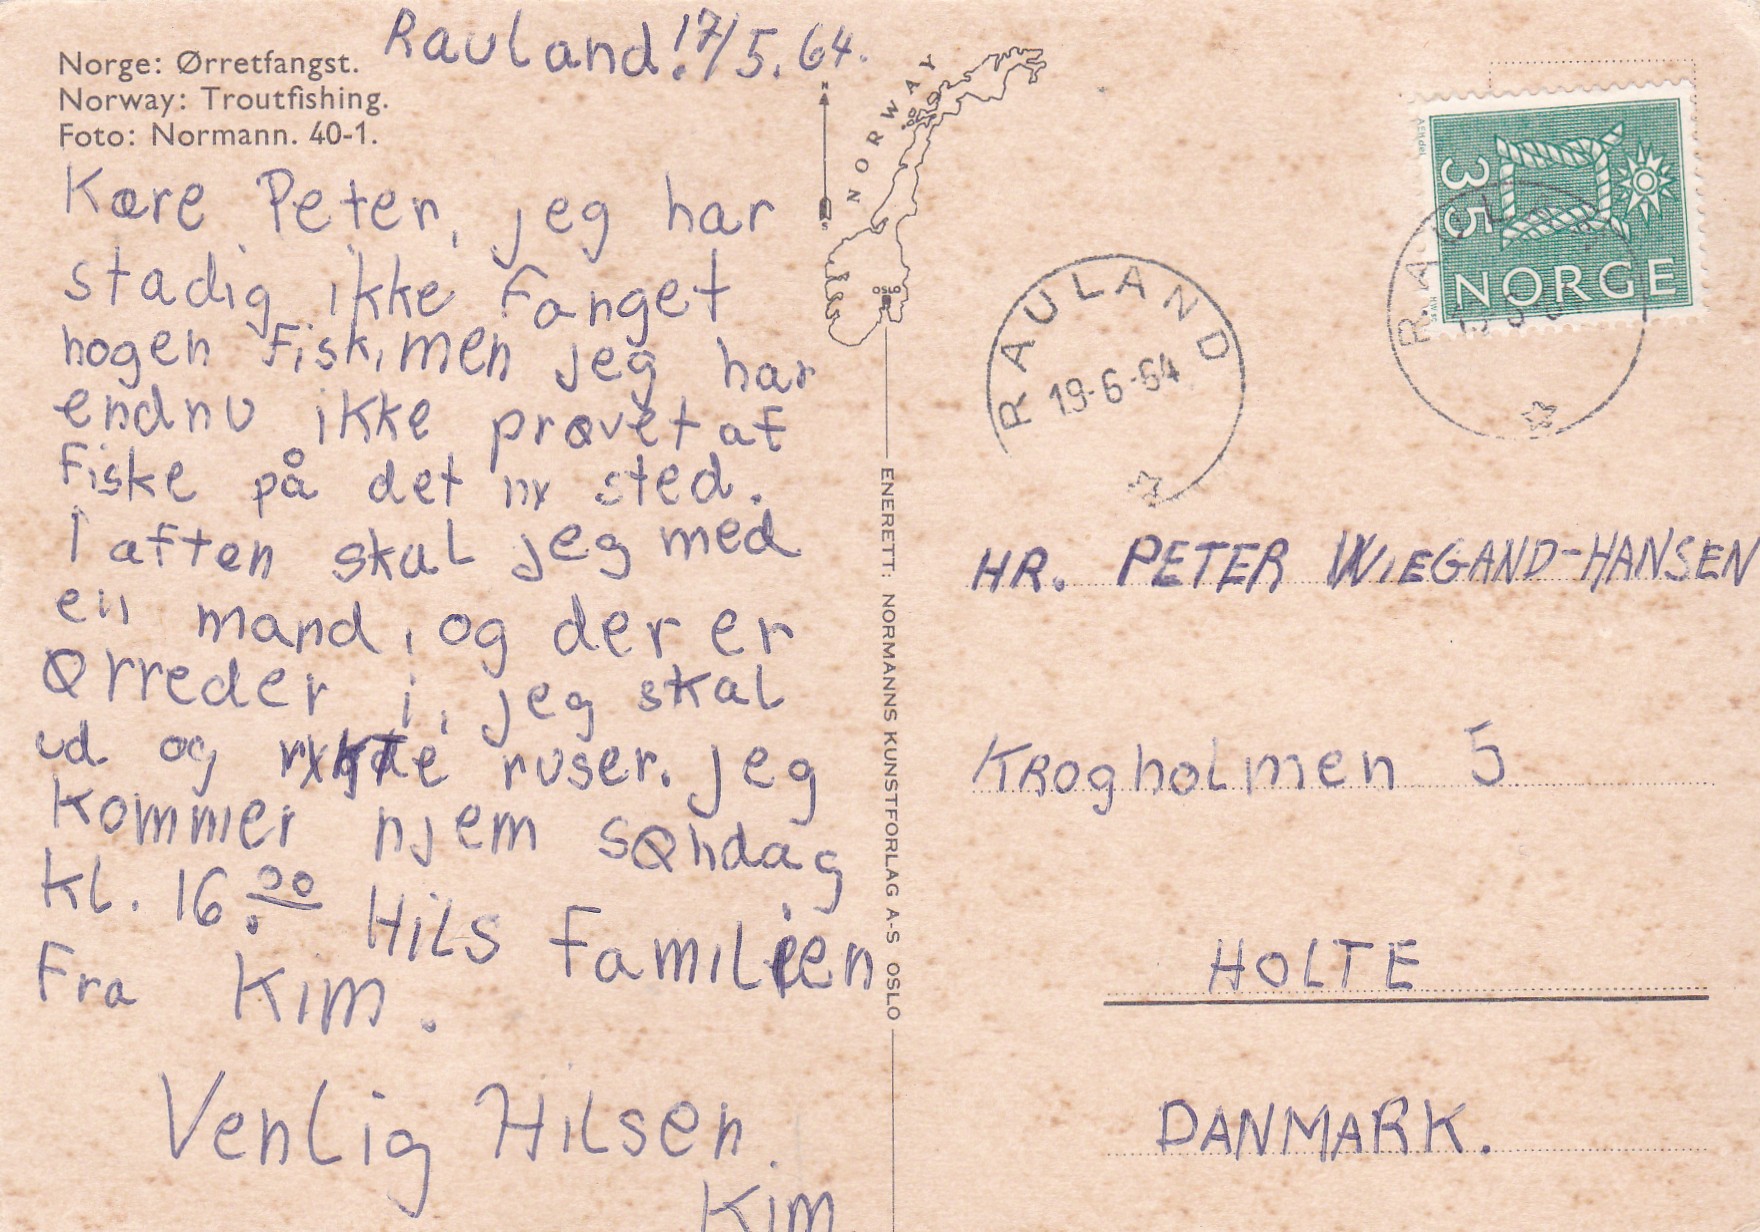 Norge: Ørretfangst.
Norway: Troutfishing.
Foto: Normann. 40-1.
Rauland! 17/5. 64.
Kære Peter, jeg har
stadig ikke fanget
nogen fisk, men jeg har
endnu ikke prøvet at
fiske på det ny sted.
I aften skal jeg med
en mand, og der er
Ørreder i, jeg skal
ud og ruser. jeg
kommer hjem søndag
kl. 16.00 Hils familien
Fra Kim.
Venlig Hilsen.
Kim
NORWAY
N
S
OSLO
ENERETT: NORMANNS KUNSTFORLAG A-S OSLO
RAULAND
19-6-64
35
NORGE
RAUL
HR. PETER WIEGAND-HANSEN
Krogholmen 5
HOLTE
DANMARK.